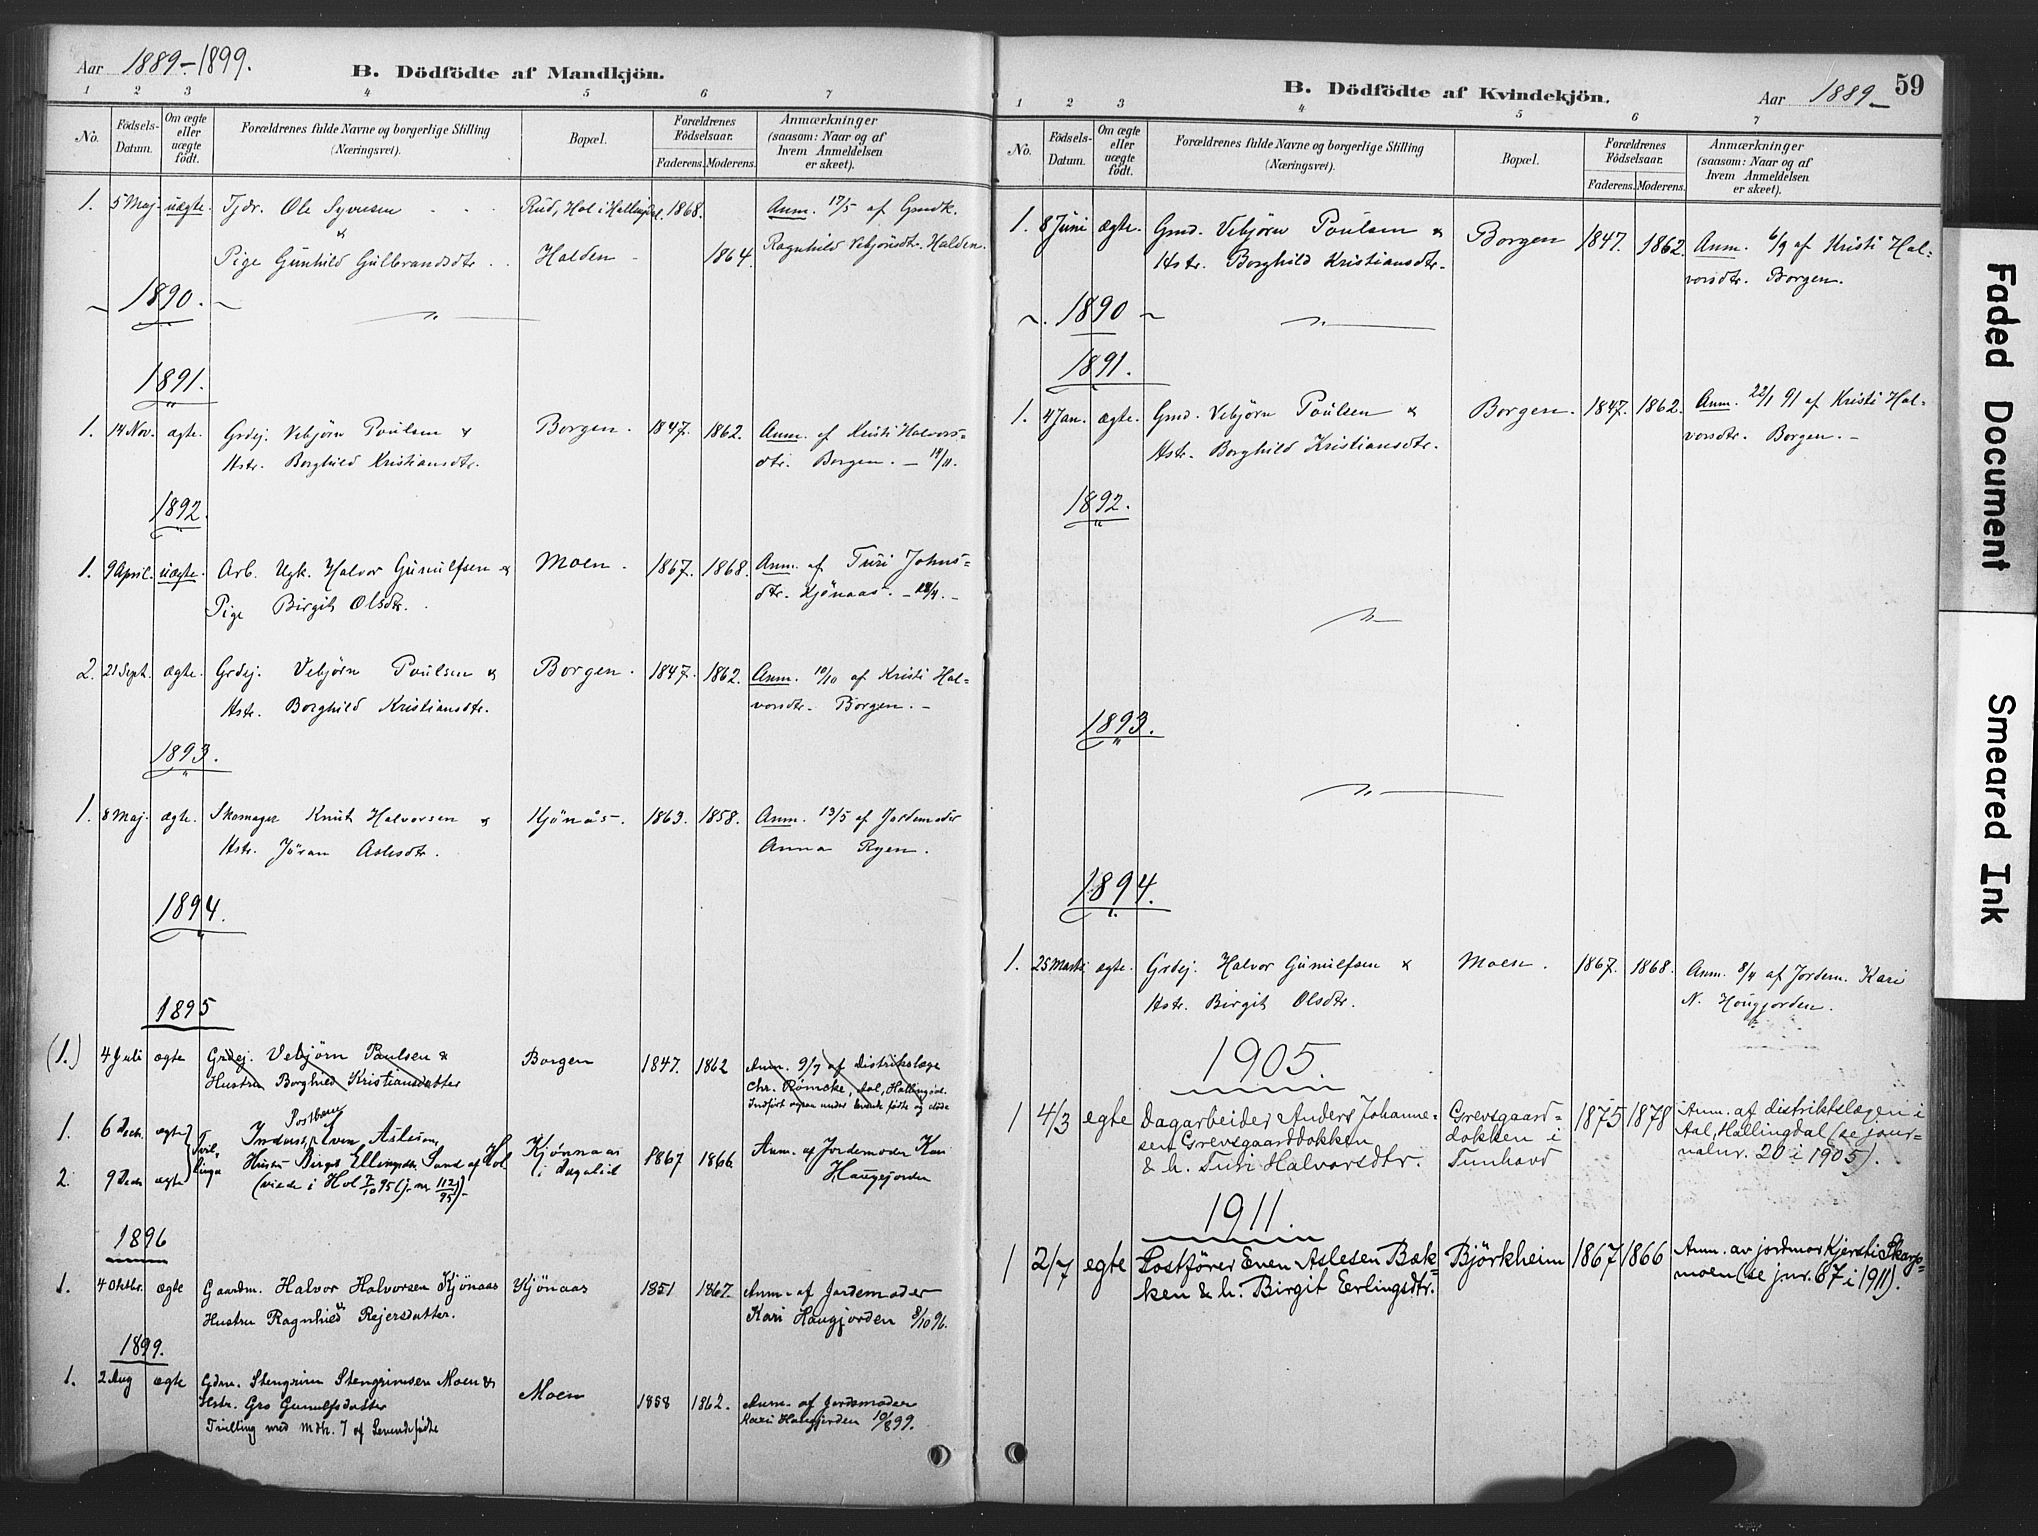 Aar 1889-1899.
B. Dödfödte af Mandkjön.
1 2 3 4 5 6 7
No.
Födsels-Datum.
Om ægte eller uægte födt.
Forældrenes fulde Navne og borgerlige Stilling (Næringsvei).
Bopæl.
Forældrenes Födselsaar.
Faderens. Moderens.
Anmærkninger (saasom: Naar og af hvem Anmeldelsen er skeet).
1. 5 Maj. uægte. Tjdr. Ole Syversen Rud, Hol i Hallingdal. 1868. Anm. 17/5 af Gmdk.
&
Pige Gunhild Gulbrandsdtr. Halden 1864. Ragnhild Vebjönsdtr. Halden.
~ 1890. ~
1891.
1. 14 Nov. ægte. Grdej. Vebjörn Poulsen & Borgen. 1847. 1862. Anm. af Kristi Halvors-
Hstr. Borghild Kristiansdtr. dtr. Borgen.
1892.
1. 9 April. uægte. Arb. Ugk. Halvor Gunulfsen & Moen. 1867. 1868. Anm. af Turi Johns-
Pige Birgit Olsdtr. dtr. Kjönaas.
2. 21 Sept. ægte. Grdej. Vebjörn Poulsen & Borgen. 1847. 1862. Anm. 10/10 af Kristi Hal-
Hstr. Borghild Kristiansdtr. vorsdtr. Borgen. -
1893.
1. 8 Maj. ægte. Skomager Knut Halvorsen & Kjönås. 1863. 1858. Anm. 13/5 af Jordemoder
Hstr. Jöran Aslesdtr. Anna Ryen.
1894.
1895
(1.) 4 Juli ægte Grdej. Vebjörn Paulsen & Borgen 1847. 1862 Anm. 9/7 af Distriktslæge
Hustru Borghild Kristiansdatter Chr. Römcke, Aal, Hallingdal.
Indfört ogsaa under levende födte og döde
Postbær
1. 6 Decbr. ægte Inderst, Even Aslesen
Tvillinge Hustru Birgit Ellingsdtr. Sand af Hol Kjönnaas i Dagalid 1867 1866 Anm. af Jordemoder Kari
2. 9 Decbr ægte (viede i Hol 7/10 95 (j. nr 112/95)). Haugejorden
1896
1. 4 Oktbr. ægte Gaardm. Halvor Halvorsen Kjönaas Kjönaas 1851 1867. Anm. af Jordemoder
& Hustru Ragnhild Rejersdatter. Kari Haugjorden 8/10 96.
1899.
1. 2 Aug ægte Gdm. Stengrim Stengrimsen Moen & Moen 1858 1862. Anm. af Jordemoder
Hstr. Gro Gunulfsdatter Kari Haugjorden 10/8 99.
Tvilling med Mdk. 7 af Levendefödte
B. Dödfödte af Kvindekjön.
Aar 1889-
59
1 2 3 4 5 6 7
No.
Födsels-Datum.
Om ægte eller uægte födt.
Forældrenes fulde Navne og borgerlige Stilling (Næringsvei).
Bopæl.
Forældrenes Födselsaar.
Faderens. Moderens.
Anmærkninger (saasom: Naar og af hvem Anmeldelsen er skeet).
1. 8 Juni ægte. Gmd. Vebjörn Poulsen & Borgen 1847. 1862. Anm. 6/9 af Kristi Hal-
Hstr. Borghild Kristiansdtr. vorsdtr. Borgen.
~. 1890 ~
1891.
1. 4 Jan. ægte. Gmd. Vebjörn Poulsen & Borgen. 1847. 1862. Anm. 22/1 91 af Kristi Hal-
Hstr. Borghild Kristiansdtr. vorsdtr. Borgen. -
1892.
1893.
1894.
1. 25 Marts ægte. Grdej. Halvor Gunulfsen & Moen. 1867. 1868. Anm. 8/4 af Jordem. Kari
Hstr. Birgit Olsdtr. N. Hougjorden.
1905.
1 4/3 egte Dagarbeider Anders Johanne- Grevsgaard- 1875 1878 Anm. af distriktslægen i
sen Grevsgaarddokken dokken i Aal, Hallingdal (se jour-
& h. Turi Halvorsdtr. Tunhovd nalnr. 20 i 1905).
1911.
1 2/7 egte Postförer Even Aslesen Bæk- Björkheim 1867 1866 Anm. av jordmor Kjersti Skarps-
ken & h. Birgit Erlingsdtr. moen (se jnr. 67 i 1911).
Faded Document
Smeared Ink